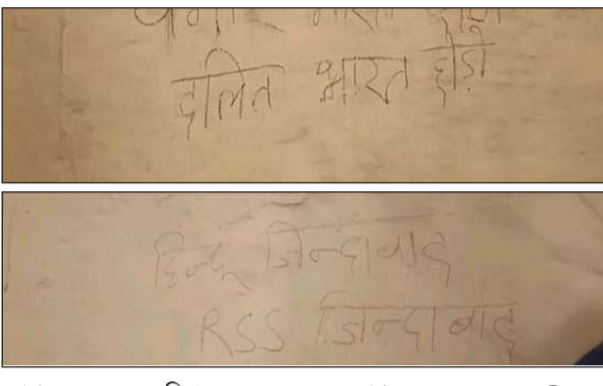 भारत
दलित भारत छोड़ो
हिन्दू जिन्दाबाद
RSS जिन्दाबाद